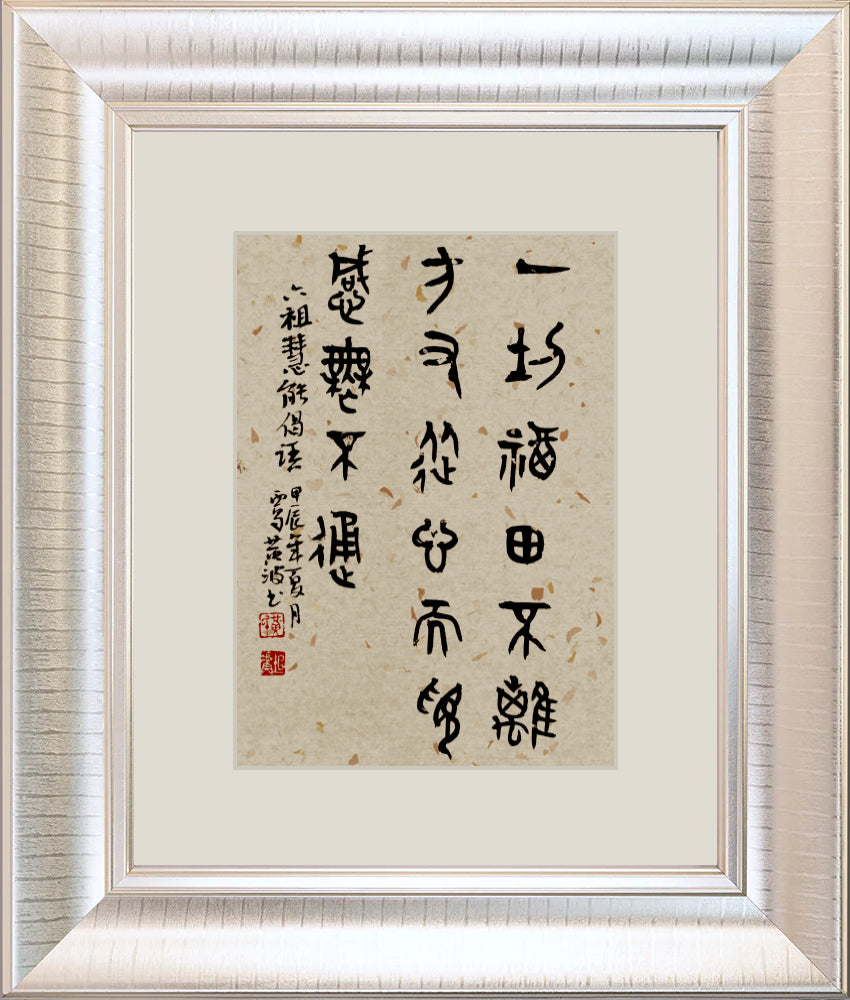 一切福田不離
方寸從心而覓
感無不通
六祖慧能偈語
甲辰年夏月